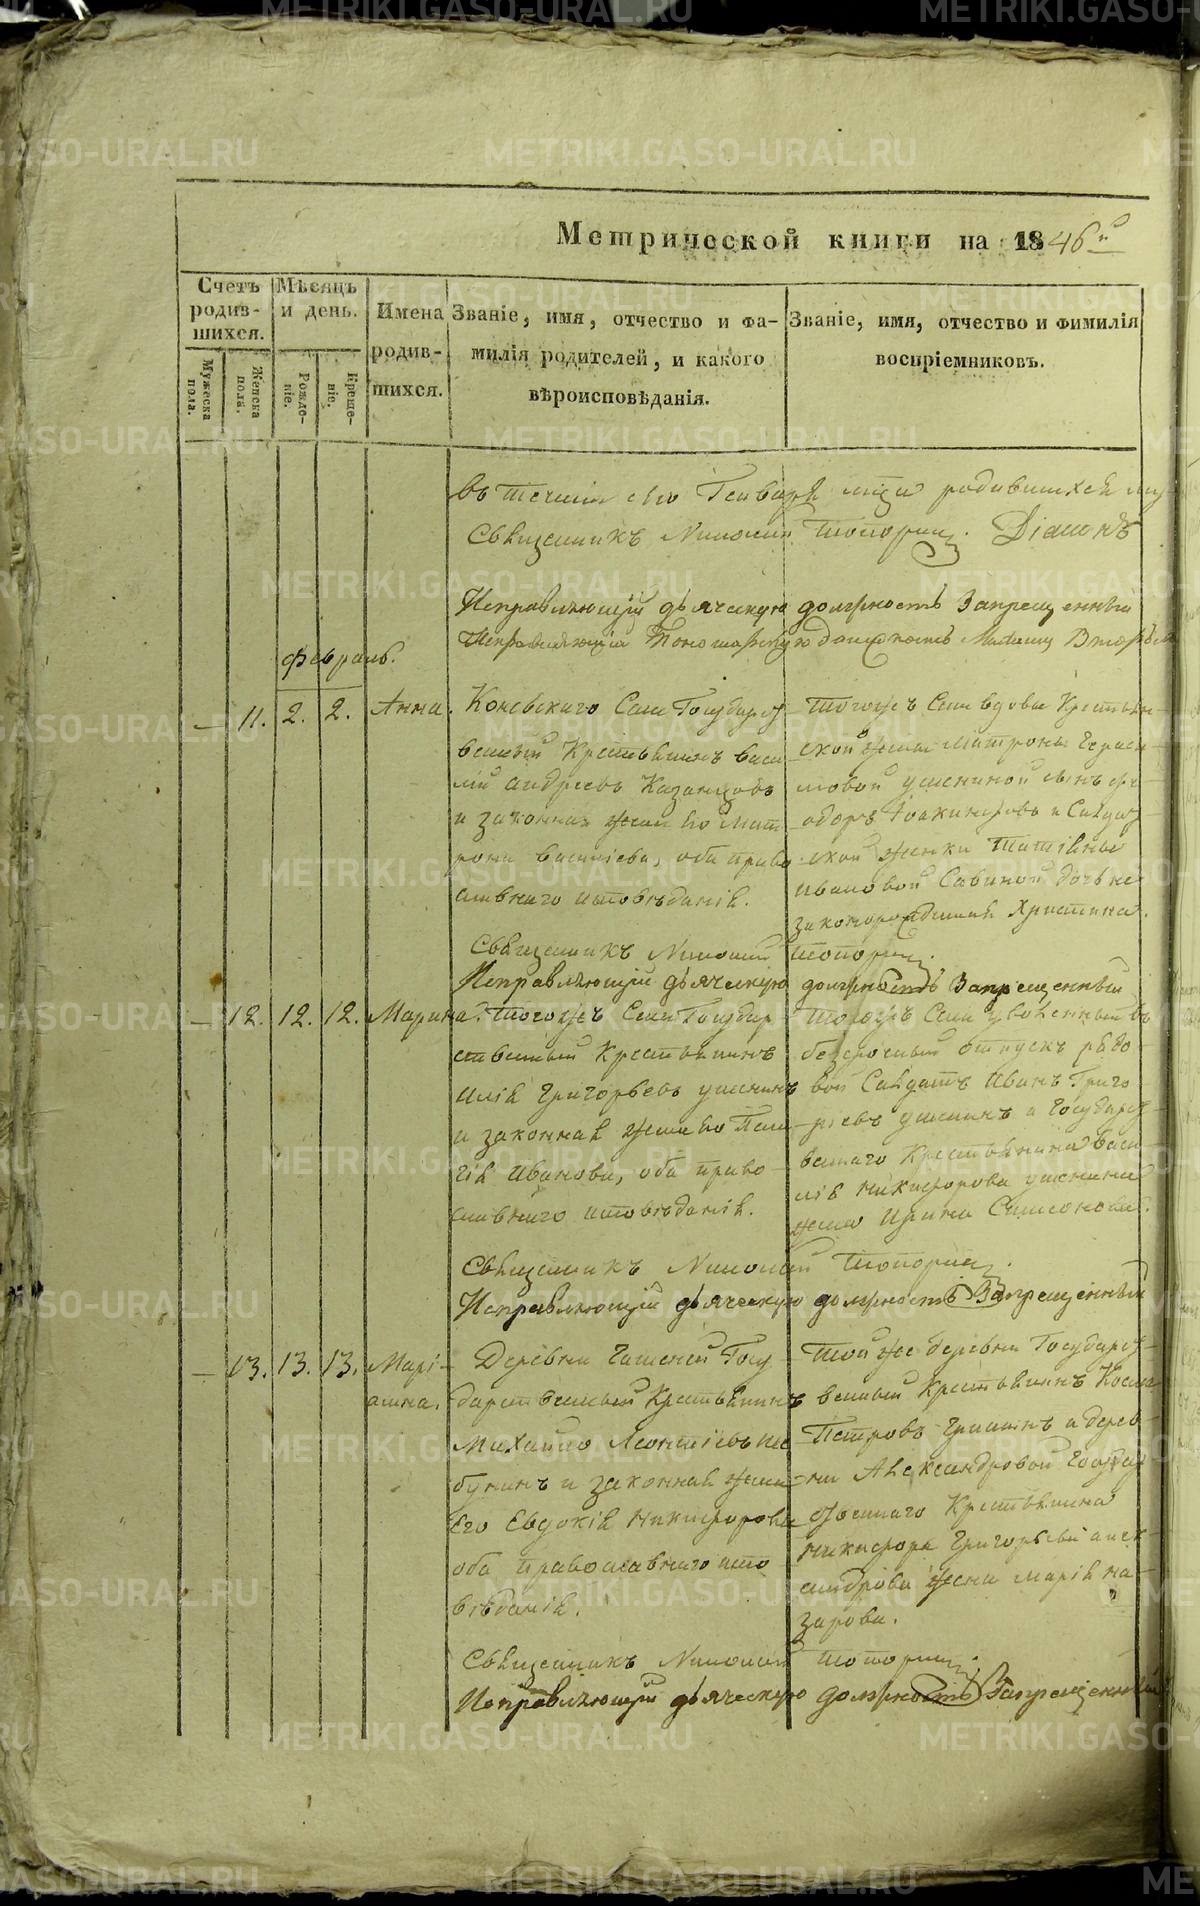 Метрической книги на 1846й
Счетъ родив-шихся.
Мужеска пола.
Женска пола.
Мѣсяцъ и день.
Рожде-ніе.
Креще-ніе.
Имена родив-шихся.
Званіе, имя, отчество и фа-
милія родителей, и какого
вѣроисповѣданія.
Званіе, имя, отчество и фимилія
воспріемниковъ.
въ теченіи сего Генваря родившихся
Священникъ Топорин. Діаконъ
Исправляющій дьяческую должность Запрещенный
Исправляющій Пономарскую должность
Февраль.
11. 2. 2. Анна.
Коневскаго Села Государст-
венный Крестьянинъ Васи
лій Андреевъ Казанцовъ
и законная жена его Мат
рона Васильева, оба право
славнаго исповѣданія.
Тогожъ Села вдовы Крестьян-
ской жены Матроны Гераси-
мовой сынъ Фе-
одоръ и Солдат-
ской женки Татіяны
Ивановой Савиной дочь не
законорожденная Христина.
Священникъ Топорин.
Исправляющій дьяческую должность Запрещенный
12. 12. 12. Марина.
Тогожъ Села Государ-
ственный Крестьянинъ
Илія Григорьевъ
и законная жена его Пела
гія Иванова, оба право-
славнаго исповѣданія.
Тогожъ Села уволенный въ
безсрочный отпускъ рядо-
вой Солдатъ Иванъ Григо
рьевъ и Государст-
веннаго Крестьянина Васи-
лія Никифорова
жена Ирина Самсонова.
Священникъ Топорин.
Исправляющій дьяческую должность Запрещенный
13. 13. 13. Марі-
амна.
Деревни Гашеней Госу-
дарственный Крестьянинъ
Михайло Леонтіевъ
и законная жена
Его Евдокія Никифорова
оба православнаго испо-
вѣданія.
Той же деревни Государст-
венный Крестьянинъ Косма
Петровъ и дерев-
ни Александровой Государ
ственнаго Крестьянина
Никифора Григорьева Алек-
сандрова жена Марія На-
зарова.
Священникъ Топорин.
Исправляющій дьяческую должность Запрещенный
METRIKI.GASO-URAL.RU